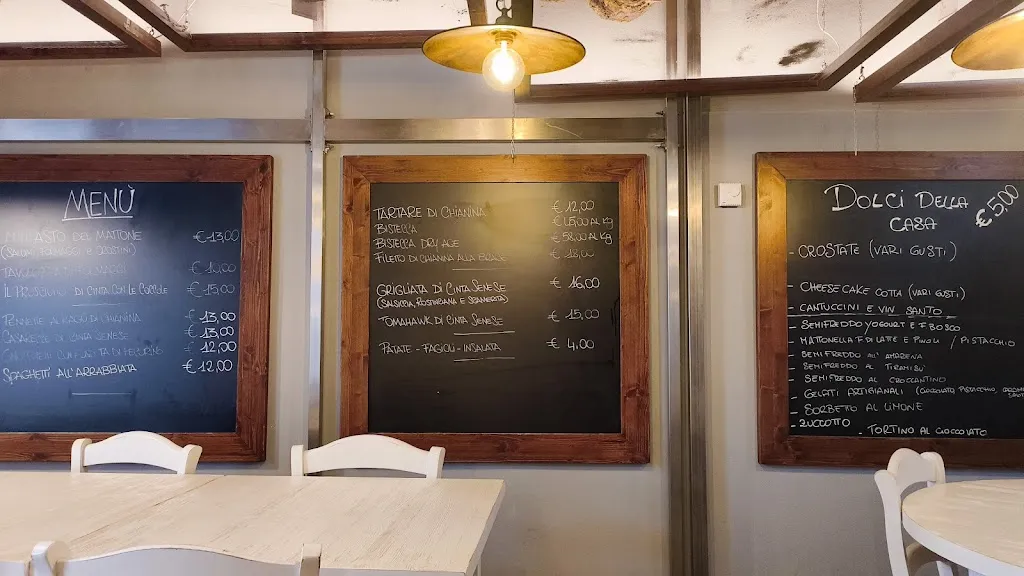 MENÙ
DEL MATTONE €13,00
€10,00
IL PROSCIUTTO DI CINTA CON LE COCCOLE €15,00
PENNETTE AL RAGÙ DI CHIANINA €13,00
DI CINTA SENESE €13,00
€12,00
SPAGHETTI ALL'ARRABBIATA €12,00
TARTARE DI CHIANINA €12,00
BISTECCA AL KG
BISTECCA DRY AGE €58,00 AL KG
FILETTO DI CHIANINA ALLA BRACE
GRIGLIATA DI CINTA SENESE €16,00
(SALSICCIA, ROSTINCIANA E SCAMERITA)
TOMAHAWK DI CINTA SENESE €15,00
PATATE - FAGIOLI - INSALATA €4,00
DOLCI DELLA CASA €5,00
- CROSTATE (VARI GUSTI)
- CHEESE CAKE COTTA (VARI GUSTI)
- CANTUCCINI E VIN SANTO
- SEMIFREDDO YOGOURT E F. BOSCO
- MATTONELLA F.DI LATTE E PINOLI / PISTACCHIO
- SEMIFREDDO ALL'AMARENA
- SEMIFREDDO AL TIRAMISÙ
- SEMIFREDDO AL CROCCANTINO
- GELATI ARTIGIANALI
- SORBETTO AL LIMONE
- ZUCCOTTO - TORTINO AL CIOCCOLATO